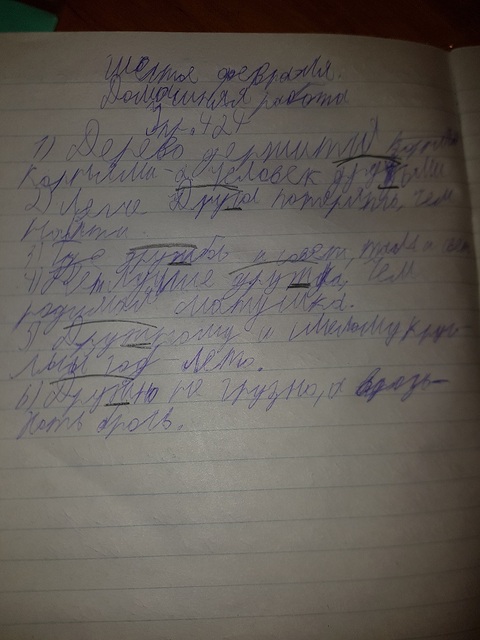 Шестое февраля.
Домашняя работа
Упр. 424
1) Дерево держится
корнями - а человек друзьями
2) Легче друга потерять, чем
найти.
3) Где дружба и совет, там и свет
4) Нет лучше дружка, чем
родимая матушка.
5) Дружному и смелому круг-
лый год лето.
6) Дружно не грузно, а врозь-
хоть брось.